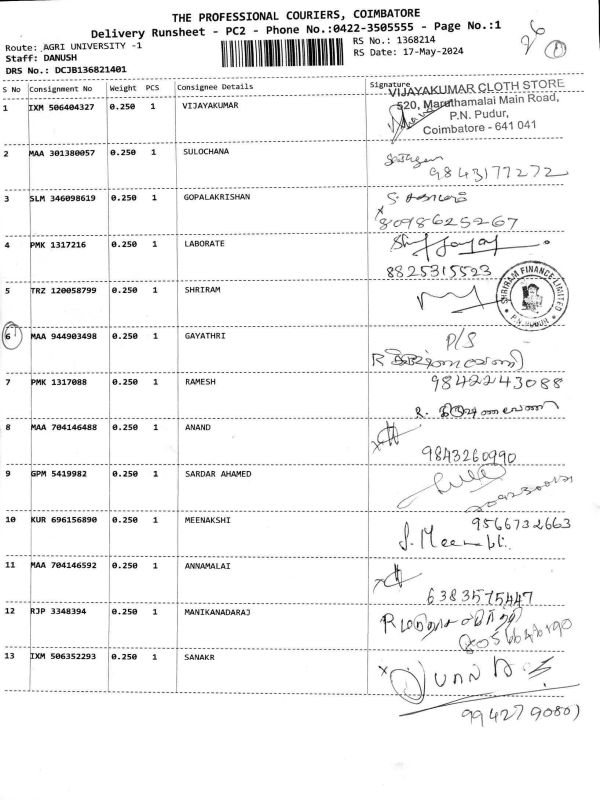 THE PROFESSIONAL COURIERS, COIMBATORE
Delivery Runsheet - PC2 - Phone No.:0422-3505555 - Page No.:1
Route: AGRI UNIVERSITY -1
RS No.: 1368214
Staff: DANUSH
RS Date: 17-May-2024
DRS No.: DCJB136821401
S No Consignment No Weight PCS Consignee Details Signature
VIJAYAKUMAR CLOTH STORE
1 IXM 506404327 0.250 1 VIJAYAKUMAR
520, Maruthamalai Main Road,
P.N. Pudur,
Coimbatore - 641 041
2 MAA 301380057 0.250 1 SULOCHANA
9843177272
3 SLM 346098619 0.250 1 GOPALAKRISHAN
8098625267
4 PMK 1317216 0.250 1 LABORATE
8825315523
5 TRZ 120058799 0.250 1 SHRIRAM
SHRIRAM FINANCE LIMITED
P.N.PUDUR
6 MAA 944903498 0.250 1 GAYATHRI
P/S
7 PMK 1317088 0.250 1 RAMESH
9842243088
8 MAA 704146488 0.250 1 ANAND
9843260990
9 GPM 5419982 0.250 1 SARDAR AHAMED
10 KUR 696156890 0.250 1 MEENAKSHI
9566732663
11 MAA 704146592 0.250 1 ANNAMALAI
6383575447
12 RJP 3348394 0.250 1 MANIKANADARAJ
13 IXM 506352293 0.250 1 SANAKR